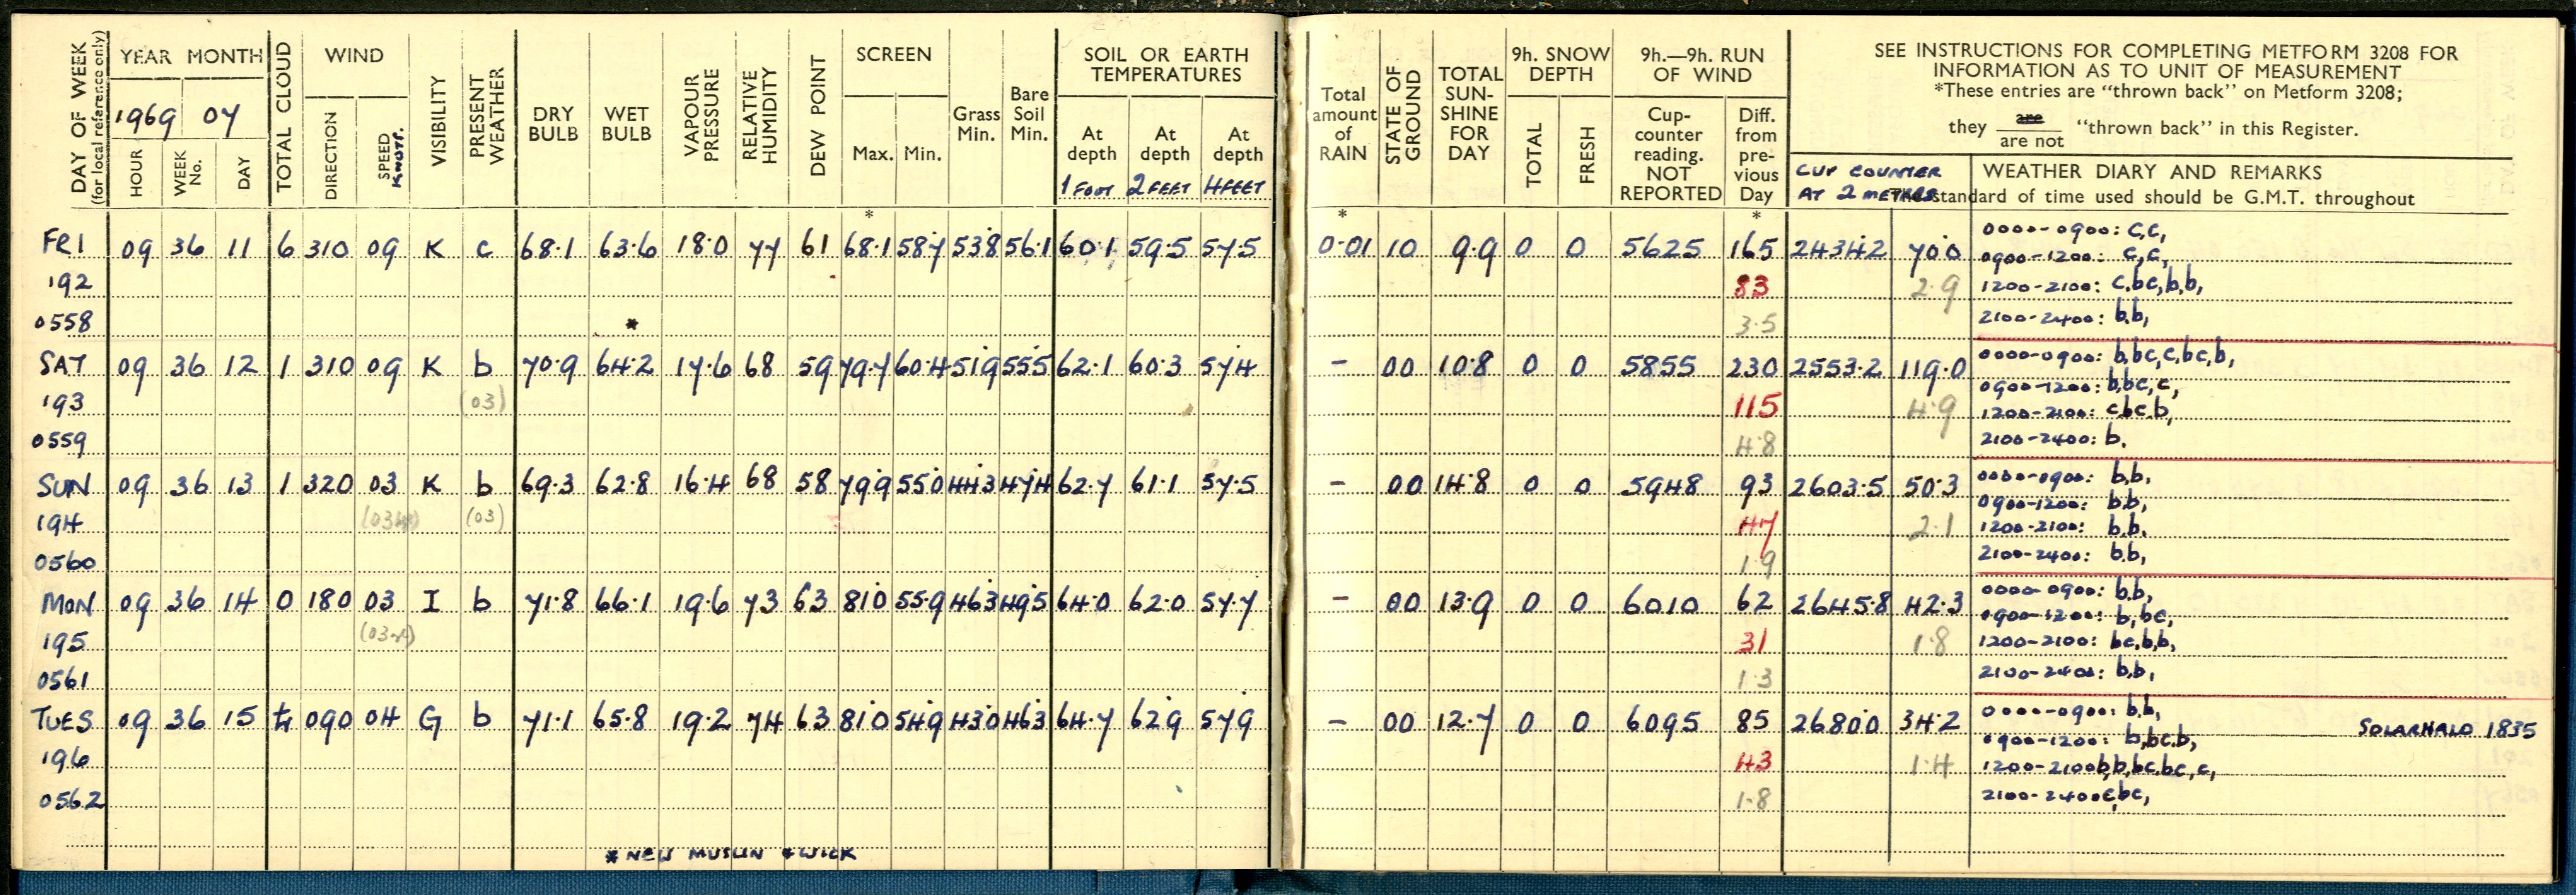 DAY OF WEEK (for local reference only)
YEAR MONTH
1969 07
HOUR WEEK No. DAY
TOTAL CLOUD
WIND
DIRECTION SPEED KNOTS.
VISIBILITY
PRESENT WEATHER
DRY BULB
WET BULB
VAPOUR PRESSURE
RELATIVE HUMIDITY
DEW POINT
SCREEN
Max. Min.
Grass Min.
Bare Soil Min.
SOIL OR EARTH TEMPERATURES
At depth 1 FOOT At depth 2 FEET At depth 4 FEET
Total amount of RAIN
STATE OF GROUND
TOTAL SUN-SHINE FOR DAY
9h. SNOW DEPTH
TOTAL FRESH
9h.—9h. RUN OF WIND
Cup-counter reading. NOT REPORTED
Diff. from pre-vious Day
SEE INSTRUCTIONS FOR COMPLETING METFORM 3208 FOR
INFORMATION AS TO UNIT OF MEASUREMENT
*These entries are "thrown back" on Metform 3208;
they are / are not "thrown back" in this Register.
CUP COUNTER AT 2 METRES
WEATHER DIARY AND REMARKS
standard of time used should be G.M.T. throughout
* * *
FRI 09 36 11 6 310 09 K c 68.1 63.6 18.0 77 61 68.1 58.7 53.8 56.1 60.1 59.5 57.5 0.01 10 9.9 0 0 5625 165 2434.2 70.0 0000-0900: c,c,
0900-1200: c,c,
192 83 2.9 1200-2100: c,bc,b,b,
0558 * 3.5 2100-2400: b,b,
SAT 09 36 12 1 310 09 K b 70.9 64.2 17.6 68 59 79.7 60.4 51.9 55.5 62.1 60.3 57.4 - 00 10.8 0 0 5855 230 2553.2 119.0 0000-0900: b,bc,c,bc,b,
0900-1200: b,bc,c,
193 (03) 115 4.9 1200-2100: c,bc,b,
0559 4.8 2100-2400: b.
SUN 09 36 13 1 320 03 K b 69.3 62.8 16.4 68 58 79.9 55.0 44.3 47.4 62.7 61.1 57.5 - 00 14.8 0 0 5948 93 2603.5 50.3 0000-0900: b,b,
0900-1200: b,b,
194 (03) 47 2.1 1200-2100: b,b,
0560 1.9 2100-2400: b,b,
MON 09 36 14 0 180 03 I b 71.8 66.1 19.6 73 63 81.0 55.9 46.3 49.5 64.0 62.0 57.7 - 00 13.9 0 0 6010 62 2645.8 42.3 0000-0900: b,b,
0900-1200: b,bc,
195 31 1.8 1200-2100: bc,b,b,
0561 1.3 2100-2400: b,b,
TUES 09 36 15 090 04 G b 71.1 65.8 19.2 74 63 81.0 54.9 43.0 46.3 64.7 62.9 57.9 - 00 12.7 0 0 6095 85 2680.0 34.2 0000-0900: b,b, SOLARHALO 1835
0900-1200: b,bc,b,
196 43 1.4 1200-2100 b,b,bc,bc,c,
0562 1.8 2100-2400 c,bc,
* NEW MUSLIN & WICK